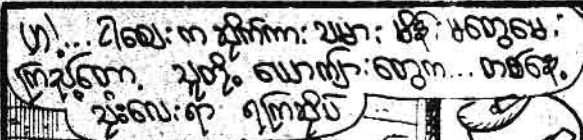 ဟာ!... ငါလေးက ဆိုက်ကားသမား မိန်းမတွေမေး
ကြည့်တော့ သူတို့ ယောက်ျားတွေက... တစ်နေ့
သုံးလေးရာ ရကြဆိုပဲ